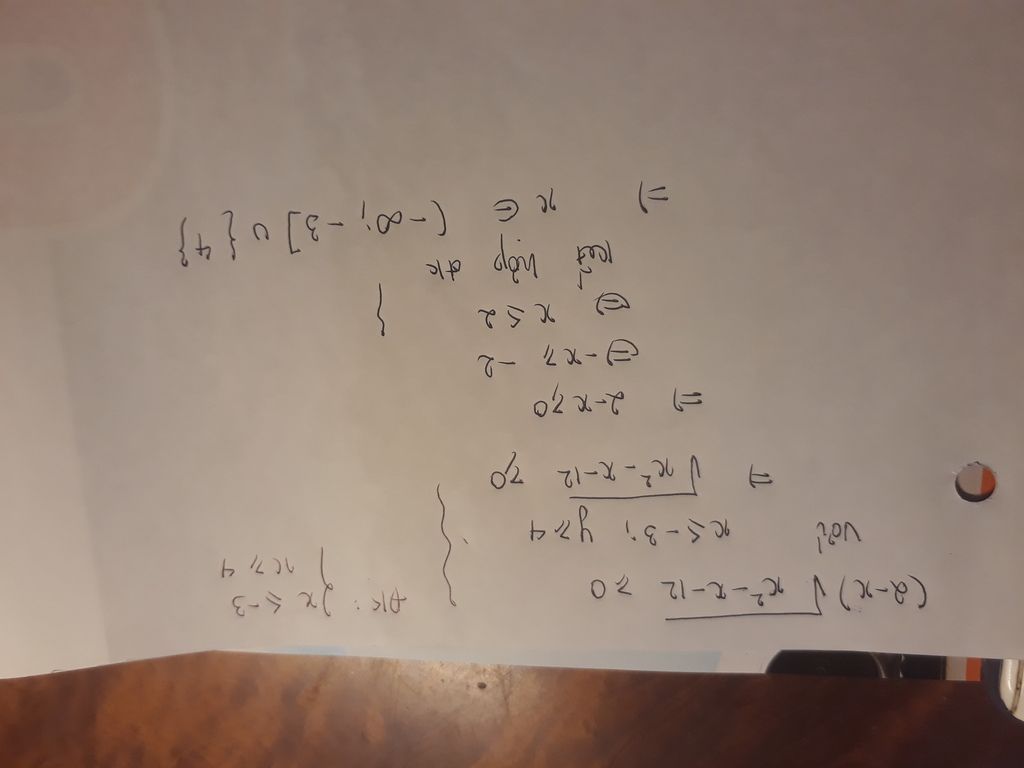 (2-x)√x²-x-12 ≥ 0
ĐK: { x ≤ -3
x ≥ 4
Với x ≤ -3; y ≥ 4
=> √x²-x-12 ≥ 0
=> 2-x ≥ 0
⇔ -x ≥ -2
⇔ x ≤ 2
Kết hợp ĐK
=> x ∈ (-∞; -3] ∪ {4}